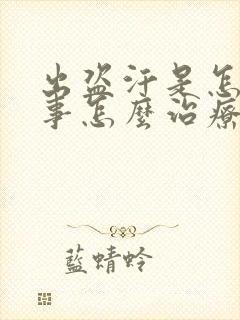 出盗汗是怎
事怎麼治療
藍蜻蛉